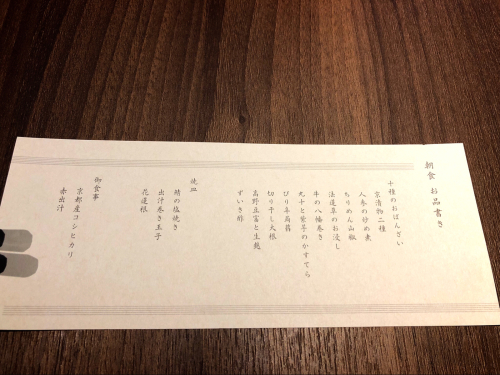 朝食 お品書き
十種のおばんざい
京漬物二種
人参の炒め煮
ちりめん山椒
法蓮草のお浸し
牛の八幡巻き
丸十と紫芋のかすてら
ぴり辛蒟蒻
切り干し大根
高野豆冨と生麩
ずいき酢
焼皿
鯖の塩焼き
出汁巻き玉子
花蓮根
御食事
京都産コシヒカリ
赤出汁